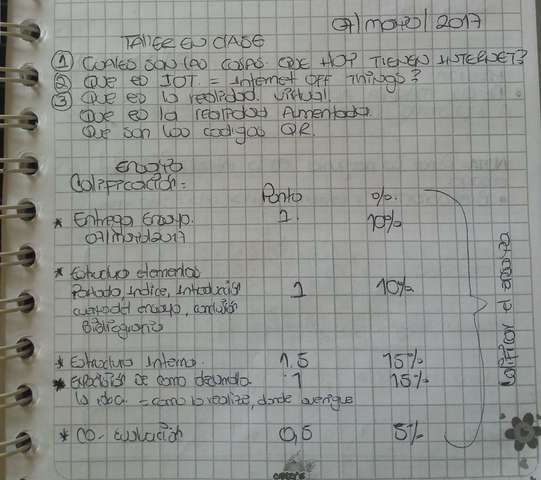 07/mayo/2017
TALLER EN CLASE
① CUALES SON LAS COSAS QUE HOY TIENEN INTERNET?
② QUE ES IOT = Internet OFF Things?
③ QUE ES la realidad virtual
Que es la realidad Aumentada
Que son los codigos QR.
Ensayo
Calificación =
Punto %
* Entrega Ensayo. 1. 10%
07/mayo/2017
* Estructura elementos
Portada, indice, introducción 1 10%
cuerpo del ensayo, conclusión
Bibliografia
* Estructura Interna. 1,5 15%
* exposición de como desarrolla 1 15%
la idea. - como lo realize, donde averigue
* CO- evaluación 0,5 5%
calificar el ensayo